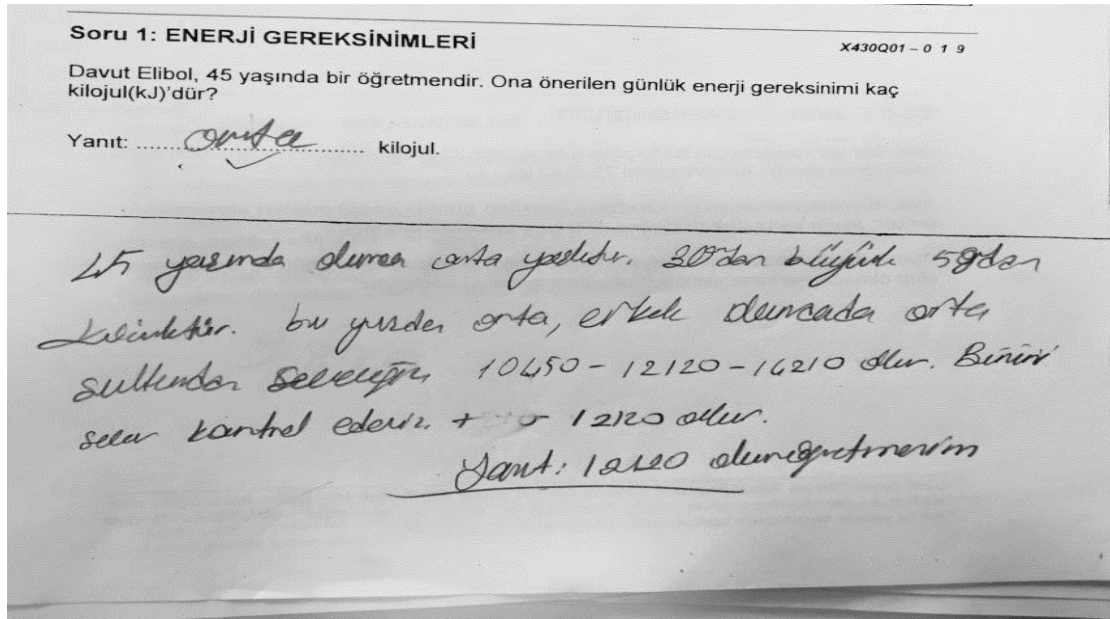 Soru 1: ENERJİ GEREKSİNİMLERİ
X430Q01 – 0 1 9
Davut Elibol, 45 yaşında bir öğretmendir. Ona önerilen günlük enerji gereksinimi kaç
kilojul(kJ)'dür?
Yanıt: ...... orta ...... kilojul.
45 yaşında olunca orta yaşlıdır. 30'dan büyük 59dan
küçüktür. bu yüzden orta, erkek oluncada orta
10450 - 12120 - 14210 olur. Birini
kontrol ederiz + 12120 olur.
Yanıt: 12120 öğretmenim